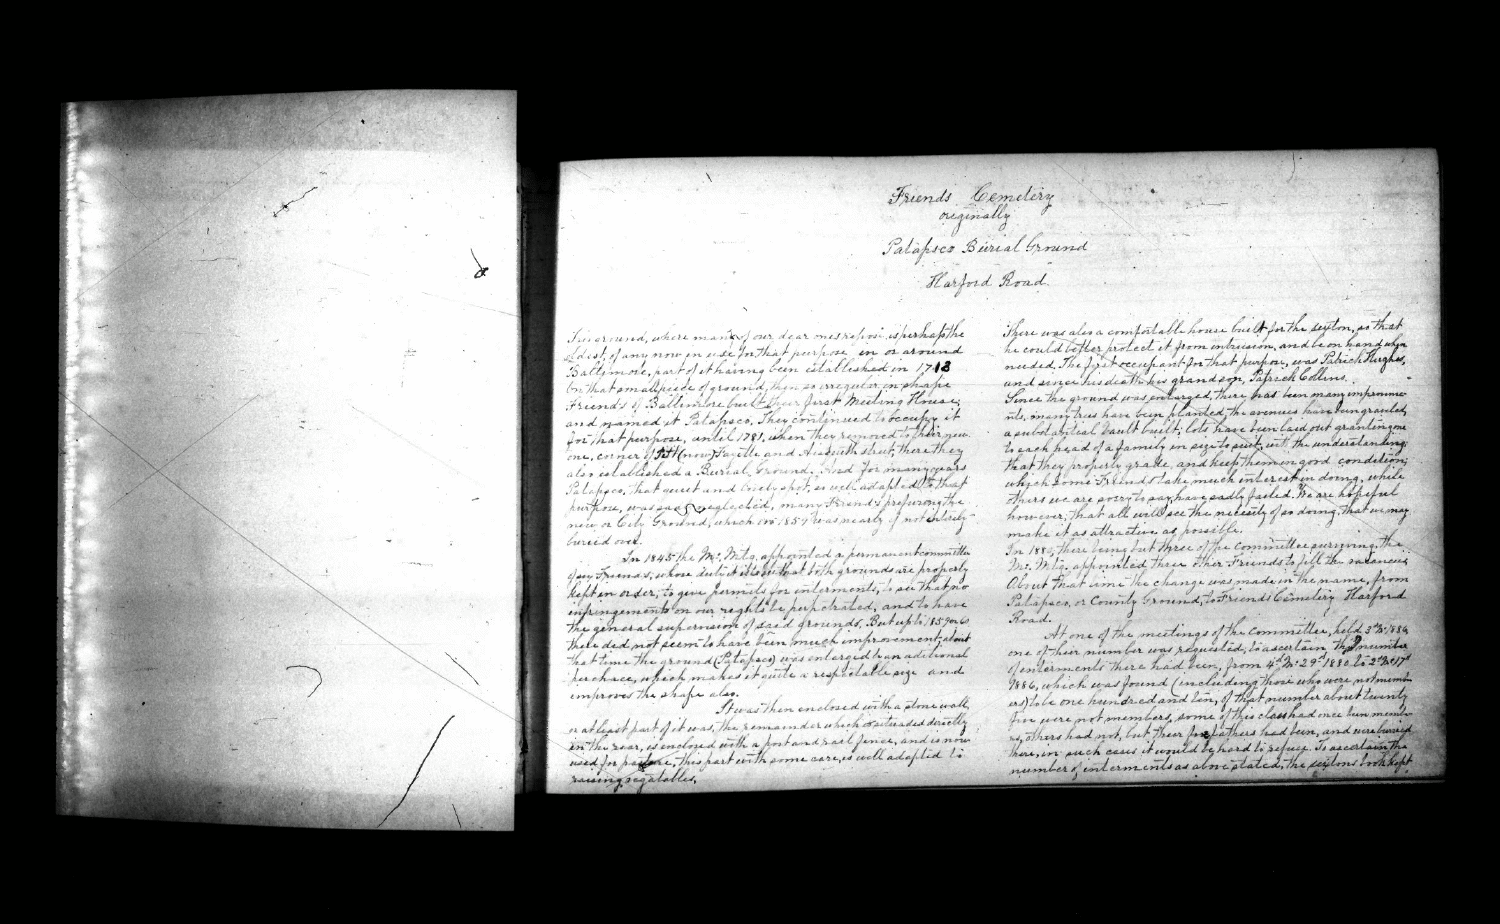 Friends Cemetery
originally
Patapsco Burial Ground
Harford Road.
The ground, where many of our dear ones repose, is perhaps the
oldest, of any now in use for that purpose in or around
Baltimore, part of it having been established in 1713
On that small piece of ground, then so irregular in shape
Friends of Baltimore built their first Meeting House,
and named it Patapsco. They continued to occupy it
for that purpose, until 1781, when they removed to their new
one, corner of Pitt (now) Fayette and Aisquith street, there they
also established a Burial Ground. And for many years
Patapsco, that quiet and lovely spot, so well adapted to that
purpose, was sadly neglected, many Friends preferring the
new or City Ground, which in 1857 was nearly if not entirely
buried over.
In 1845 the Mo. Mtg. appointed a permanent committee
of six Friends, whose duty it is to see that both grounds are properly
kept in order, to give permits for interments, to see that no
infringements on our rights be perpetrated, and to have
the general supervision of said grounds. But up to 1859 or 60
there did not seem to have been much improvement, about
that time the ground (Patapsco) was enlarged by an aditional
perchace, which makes it quite a respectable size and
improves the shape also.
It was then enclosed with a stone wall,
or at least part of it was, the remainder which is situated directly
in the rear, is enclosed with a post and rail fence, and is now
used for pasture, this part with some care, is well adapted to
raising vegatables.
There was also a comfortable house built for the sexton, so that
he could better protect it from intrusion, and be on hand when
needed. The first occupant for that purpose, was Patrick Hughes,
and since his death his grandson, Patrick Collins.
Since the ground was enlarged, there has been many improvme-
nts, many trees have been planted, the avenues have been graveled,
a substantial Vault built; lots have been laid out granting one
to each head of a family in size to suit, with the understanding,
that they properly grade, and keep them in good condition,
which some Friends take much interest in doing, while
others we are sorry to say, have sadly failed. We are hopeful
however, that all will see the necesity of so doing, that we may
make it as attractive as possible.
In 188, there being but three of the Committee surviving, the
Mo. Mtg. appointed three other Friends to fill the vacancies
About that time the change was made in the name, from
Patapsco, or County Ground, to Friends Cemetery Harford
Road.
At one of the meetings of the Committee, held 3rd Mo. 1886,
one of their number was requested, to ascertain, the number
of interments there had been, from 4th Mo. 29th 1880 to 2nd Mo. 17th
1886, which was found (including those who were not memb-
ers) to be one hundred and ten, of that number about twenty
five were not members, some of this class had once been memb-
rs, others had not, but their forefathers had been, and were buried
there, in such cases it would be hard to refuse. To ascertain the
number of interments as above stated, the sextons book kept